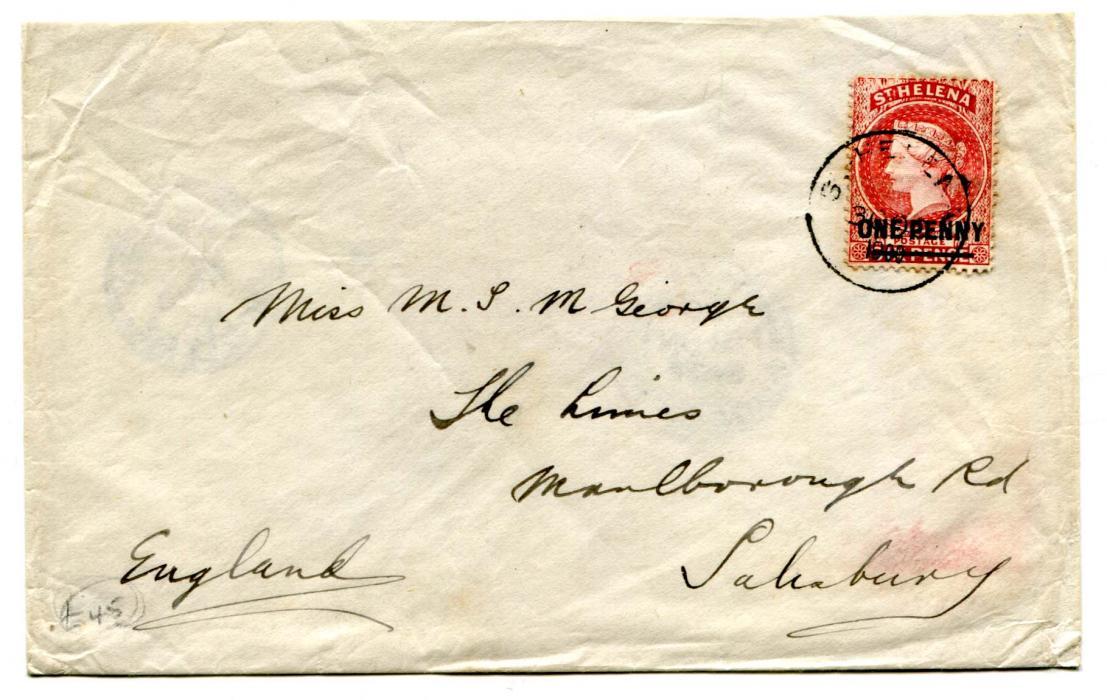 ST HELENA
ONE PENNY
POSTAGE
PENCE
Miss M. S. McGeorge
The Limes
Marlborough Rd
Salisbury
England
£45